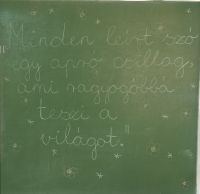 "Minden leírt szó
egy apró csillag,
ami ragyogóbbá
teszi a
világot."